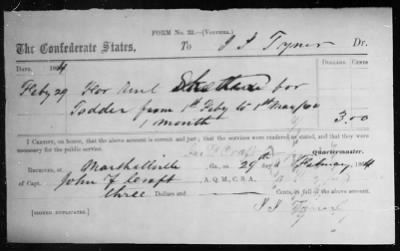 FORM No. 22.—(VOUCHER.)
The Confederate States, To J J Tyner Dr.
DATE, 1864 DOLLARS CENTS
Feby 29 For Rent for
fodder from 1st Feby to 1st Mar/64
1 month 3.00
I CERTIFY, on honor, that the above account is correct and just, that the services were rendered as stated, and that they were
necessary for the public service.
Quartermaster.
RECEIVED, at Marshallville Ga., on 29th of February, 1864
of Capt. John F Craft A. Q. M., C. S. A.
three Dollars and Cents, in full of the above account.
[SIGNED DUPLICATES.] J J Tyner